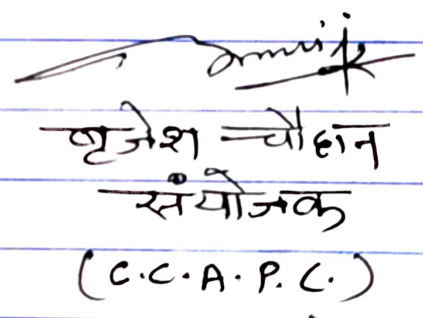 बृजेश चौहान
संयोजक
(C.C.A.P.C.)